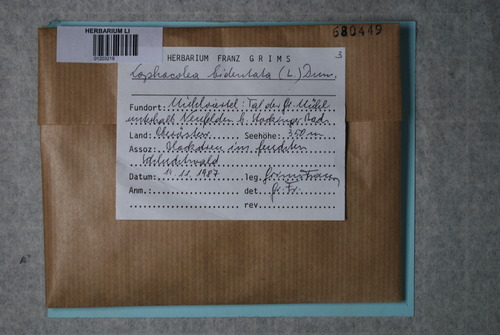 680449
HERBARIUM LI
01203216
HERBARIUM FRANZ GRIMS 3
Lophocolea bidentata (L.) Dum.
Fundort: Mühlviertel: Tal der Gr. Mühl
unterhalb Neufelden b.
Land: Oberösterr. Seehöhe: 350 m
Assoz: Blockstrom im feuchten
Schluchtwald
Datum: 14.11.1987 leg. Grims Franz
Anm.: det. Gr. Fr.
rev.